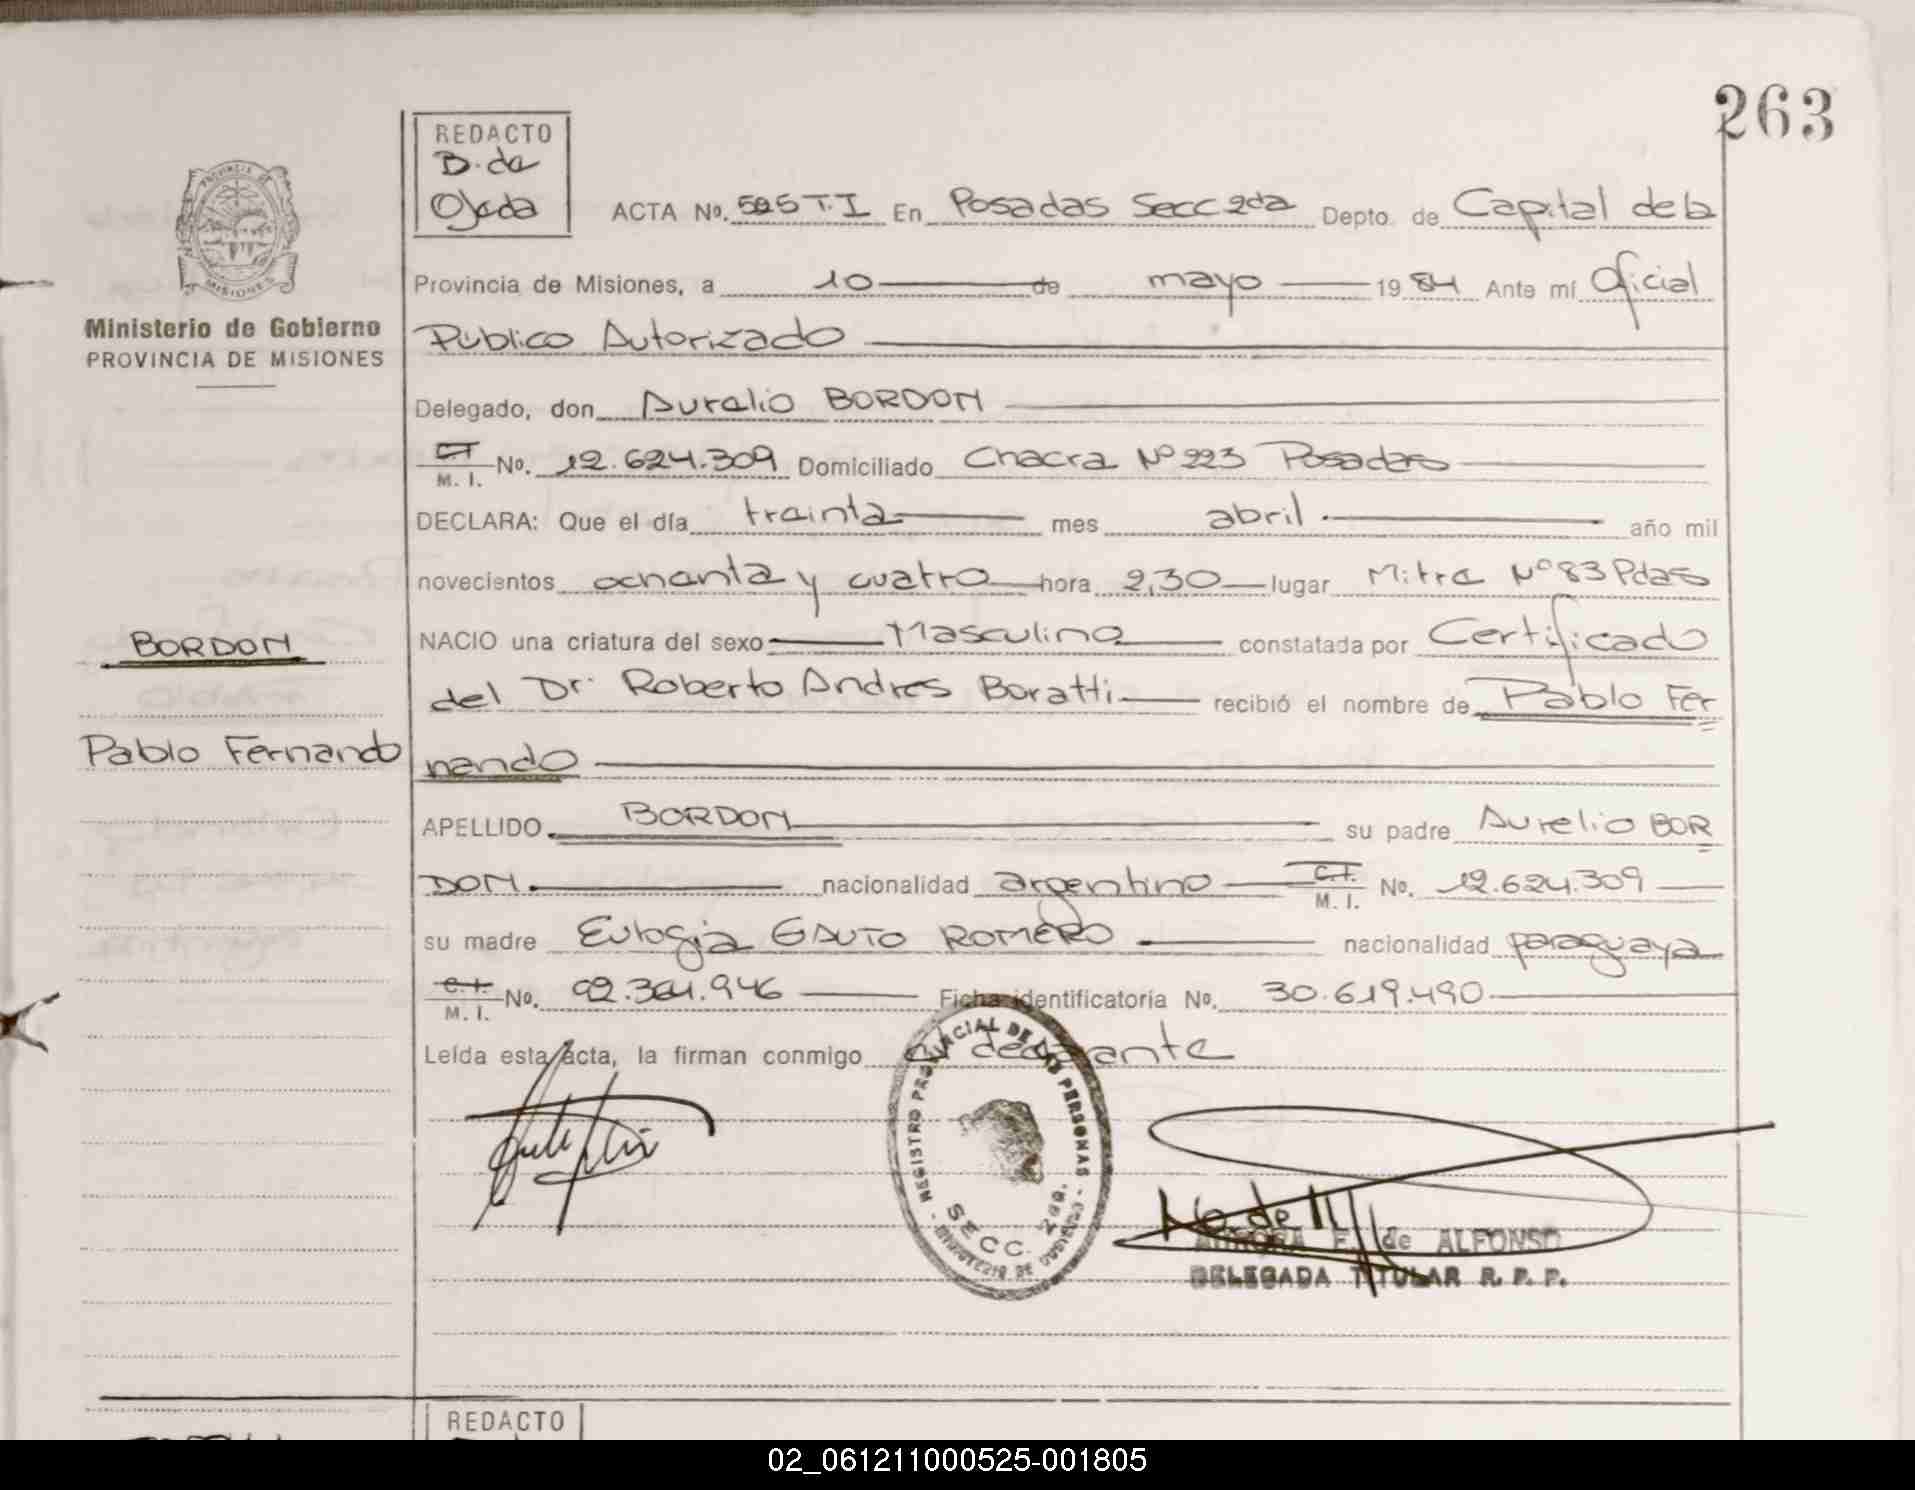 263
REDACTO
B. de
Ojeda
ACTA No. 525 T. I En Posadas Secc 2da Depto. de Capital de la
Provincia de Misiones, a 10 de mayo 1984 Ante mí Oficial
Ministerio de Gobierno
PROVINCIA DE MISIONES
Publico Autorizado
Delegado, don Aurelio BORDON
C.I.
M. I. No. 12.624.309 Domiciliado Chacra Nº 223 Posadas
DECLARA: Que el día treinta mes abril año mil
novecientos ochenta y cuatro hora 2,30 lugar Mitre Nº 83 Pdas
NACIO una criatura del sexo Masculino constatada por Certificado
BORDON
del Dr. Roberto Andres Boratti recibió el nombre de Pablo Fer
Pablo Fernando
nando
APELLIDO BORDON su padre Aurelio BOR
DON nacionalidad argentino C.I.
M. I. No. 12.624.309
su madre Eulogia GAUTO ROMERO nacionalidad paraguaya
C.I.
M. I. No. 92.364.946 Ficha identificatoria No. 30.619.490
Leída esta acta, la firman conmigo el declarante
REGISTRO PROVINCIAL DE LAS PERSONAS
SECC. 2da.
MINISTERIO DE GOBIERNO
AURORA F. de ALFONSO
DELEGADA TITULAR R. P. P.
REDACTO
02_061211000525-001805